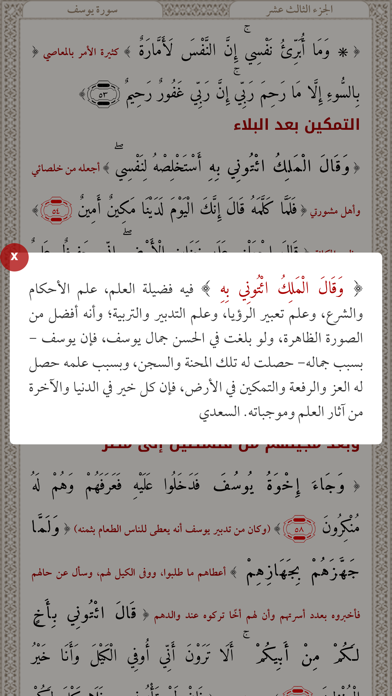 الجزء الثالث عشر
سورة يوسف
﴿ ۞ وَمَا أُبَرِّئُ نَفْسِي ۚ إِنَّ النَّفْسَ لَأَمَّارَةٌ ﴾ كثيرة الأمر بالمعاصي ﴿
بِالسُّوءِ إِلَّا مَا رَحِمَ رَبِّي ۚ إِنَّ رَبِّي غَفُورٌ رَحِيمٌ ٥٣ ﴾
التمكين بعد البلاء
﴿ وَقَالَ الْمَلِكُ ائْتُونِي بِهِ أَسْتَخْلِصْهُ لِنَفْسِي ۖ ﴾ أجعله من خلصائي
وأهل مشورتي ﴿ فَلَمَّا كَلَّمَهُ قَالَ إِنَّكَ الْيَوْمَ لَدَيْنَا مَكِينٌ أَمِينٌ ٥٤ ﴾
x
﴿ وَقَالَ الْمَلِكُ ائْتُونِي بِهِ ﴾ فيه فضيلة العلم، علم الأحكام
والشرع، وعلم تعبير الرؤيا، وعلم التدبير والتربية؛ وأنه أفضل من
الصورة الظاهرة، ولو بلغت في الحسن جمال يوسف، فإن يوسف –
بسبب جماله– حصلت له تلك المحنة والسجن، وبسبب علمه حصل
له العز والرفعة والتمكين في الأرض، فإن كل خير في الدنيا والآخرة
من آثار العلم وموجباته. السعدي
﴿ وَجَاءَ إِخْوَةُ يُوسُفَ فَدَخَلُوا عَلَيْهِ فَعَرَفَهُمْ وَهُمْ لَهُ
مُنْكِرُونَ ٥٨ ﴾ (وكان من تدبير يوسف أنه يعطى للناس الطعام بثمنه) ﴿ وَلَمَّا
جَهَّزَهُمْ بِجَهَازِهِمْ ﴾ أعطاهم ما طلبوا، ووفى الكيل لهم، وسأل عن حالهم
فأخبروه بعدد أسرتهم وأن لهم أخا تركوه عند والدهم ﴿ قَالَ ائْتُونِي بِأَخٍ
لَكُمْ مِنْ أَبِيكُمْ ۚ أَلَا تَرَوْنَ أَنِّي أُوفِي الْكَيْلَ وَأَنَا خَيْرُ